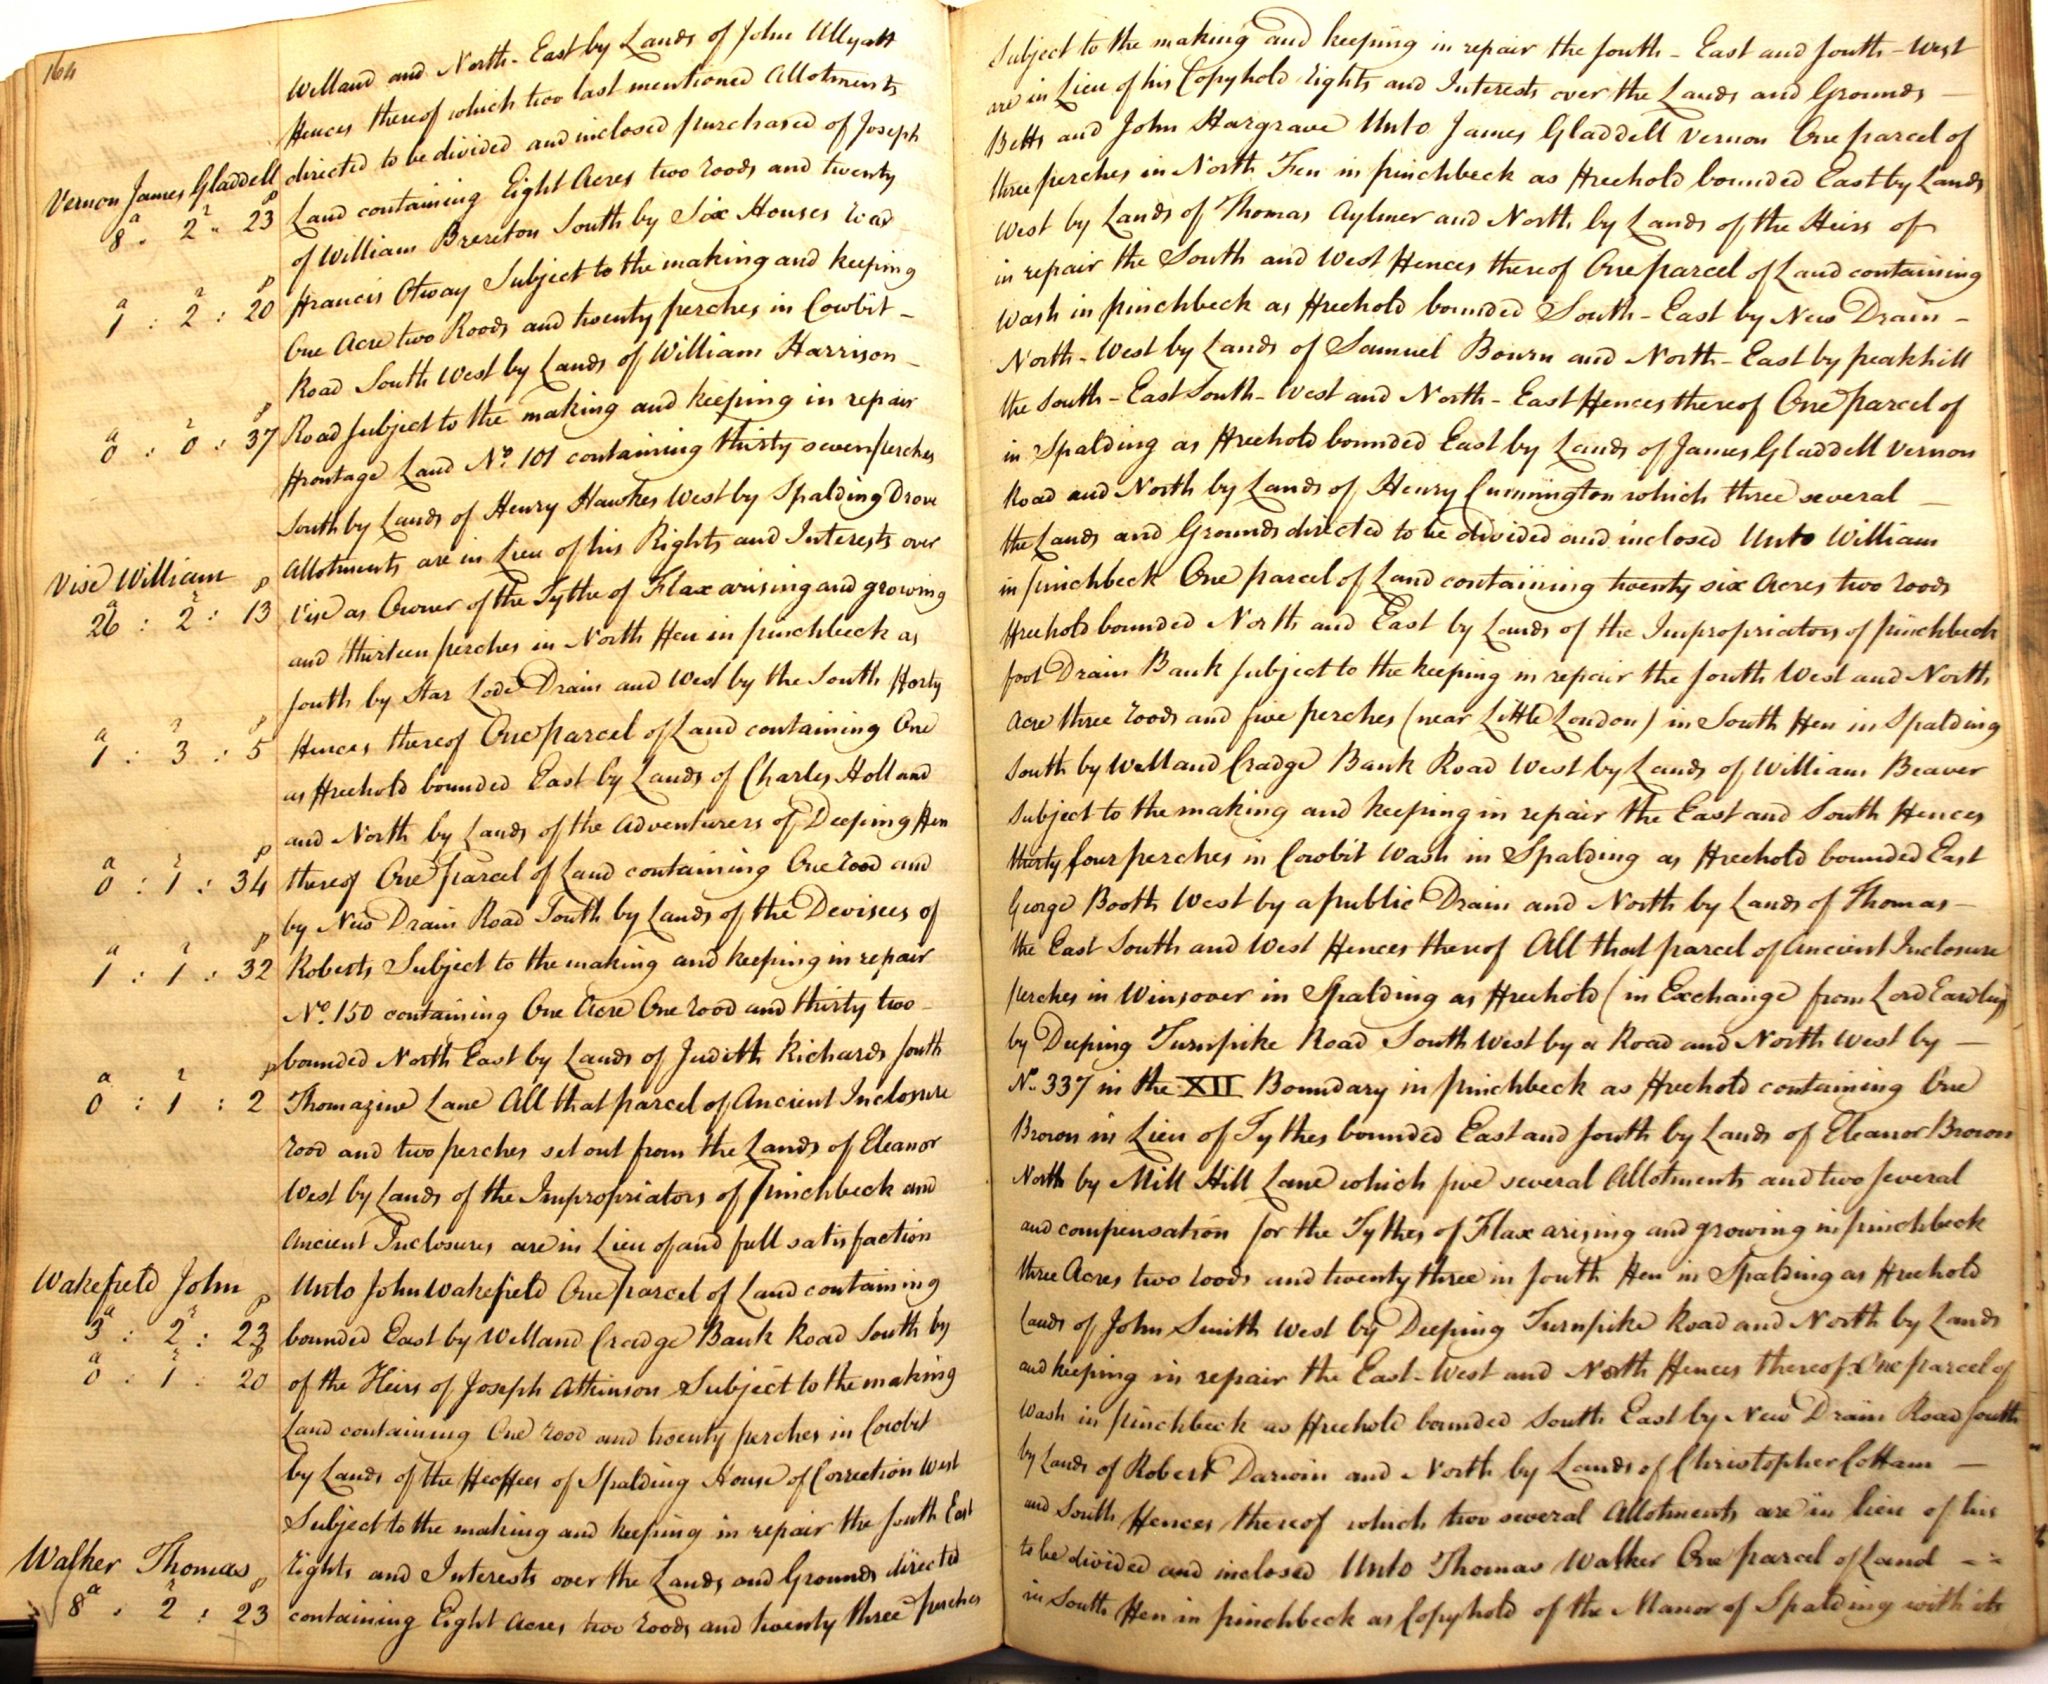 164
Welland and North-East by Lands of John Ullyatt Subject to the making and keeping in repair the South-East and South-West
Fences thereof which two last mentioned Allotments are in Lieu of his Copyhold Rights and Interests over the Lands and Grounds
directed to be divided and inclosed purchased of Joseph Betts and John Hargrave Unto James Gladdell Vernon One parcel of
Vernon James Gladdell
a r p
8 . 2 . 23
Land containing Eight Acres two roods and twenty three perches in North Fen in pinchbeck as Freehold bounded East by Lands
of William Brereton South by Six Houses road West by Lands of Thomas Aylmer and North by Lands of the Heirs of
Francis Otway Subject to the making and keeping in repair the South and West Fences thereof One parcel of Land containing
a r p
1 : 2 : 20
One Acre two Roods and twenty perches in Cowbit - Wash in pinchbeck as Freehold bounded South-East by New Drain -
Road South West by Lands of William Harrison - North-West by Lands of Samuel Bourn and North-East by peakhill
Road Subject to the making and keeping in repair the South-East South-West and North-East Fences thereof One parcel of
a r p
0 : 0 : 37
Frontage Land No. 101 containing thirty seven perches in Spalding as Freehold bounded East by Lands of James Gladdell Vernon
South by Lands of Henry Hawkes West by Spalding Drove Road and North by Lands of Henry Cunnington which three several -
Allotments are in Lieu of his Rights and Interests over the Lands and Grounds directed to be divided and inclosed Unto William
Vise William
a r p
26 : 2 : 13
Vise as Owner of the Tythe of Flax arising and growing in pinchbeck One parcel of Land containing twenty six Acres two roods
and thirteen perches in North Fen in pinchbeck as Freehold bounded North and East by Lands of the Impropriators of pinchbeck
South by Star Lode Drain and West by the South Forty foot Drain Bank Subject to the keeping in repair the South West and North
Fences thereof One parcel of Land containing One Acre three roods and five perches (near Little London) in South Fen in Spalding
a r p
1 : 3 : 5
as Freehold bounded East by Lands of Charles Holland South by Welland Cradge Bank Road West by Lands of William Beaver
and North by Lands of the Adventurers of Deeping Fen Subject to the making and keeping in repair the East and South Fences
a r p
0 : 1 : 34
thereof One parcel of Land containing One rood and thirty four perches in Cowbit Wash in Spalding as Freehold bounded East
by New Drain Road South by Lands of the Devisees of George Booth West by a public Drain and North by Lands of Thomas -
Roberts Subject to the making and keeping in repair the East South and West Fences thereof All that parcel of Ancient Inclosure
a r p
1 : 1 : 32
No. 150 containing One Acre One rood and thirty two - perches in Winsover in Spalding as Freehold (in Exchange from Lord Eardley)
bounded North East by Lands of Judith Richards South by Deeping Turnpike Road South West by a Road and North West by -
Thomazine Lane All that parcel of Ancient Inclosure No. 337 in the XII Boundary in pinchbeck as Freehold containing One
a r p
0 : 1 : 2
rood and two perches set out from the Lands of Eleanor Brown in Lieu of Tythes bounded East and South by Lands of Eleanor Brown
West by Lands of the Impropriators of pinchbeck and North by Mill Hill Lane which five several Allotments and two several
Ancient Inclosures are in Lieu of and full satisfaction and compensation for the Tythes of Flax arising and growing in pinchbeck
Wakefield John
a r p
3 : 2 : 23
Unto John Wakefield One parcel of Land containing three Acres two roods and twenty three in South Fen in Spalding as Freehold
bounded East by Welland Cradge Bank Road South by Lands of John Smith West by Deeping Turnpike Road and North by Lands
of the Heirs of Joseph Atkinson Subject to the making and keeping in repair the East-West and North Fences thereof One parcel of
a r p
0 : 1 : 20
Land containing One rood and twenty perches in Cowbit Wash in pinchbeck as Freehold bounded South East by New Drain Road South
by Lands of the Feoffees of Spalding House of Correction West by Lands of Robert Darwin and North by Lands of Christopher Cottam -
Subject to the making and keeping in repair the South East and South Fences thereof which two several Allotments are in lieu of his
Rights and Interests over the Lands and Grounds directed to be divided and inclosed Unto Thomas Walker One parcel of Land
Walker Thomas
a r p
8 . 2 : 23
containing Eight Acres two roods and twenty three perches in South Fen in pinchbeck as Copyhold of the Manor of Spalding with its